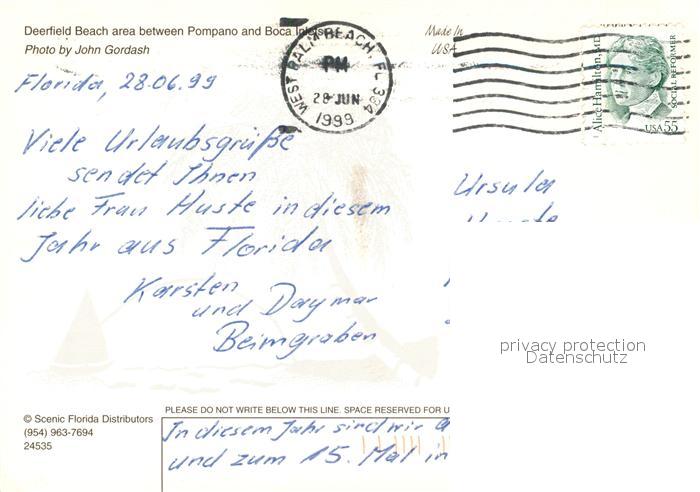 Deerfield Beach area between Pompano and Boca Inlets
Photo by John Gordash
Made In
USA
WEST PALM BEACH, FL 334
PM
28 JUN
1999
Alice Hamilton, MD
SOCIAL REFORMER
USA 55
Florida, 28.06.99
Viele Urlaubsgrüße
sendet Ihnen
liebe Frau Huste in diesem
Jahr aus Florida
Karsten
und Daymar
Beimgraben
Ursula
privacy protection
Datenschutz
© Scenic Florida Distributors
(954) 963-7694
24535
PLEASE DO NOT WRITE BELOW THIS LINE. SPACE RESERVED FOR U
In diesem Jahr sind wir
und zum 15. Mal in